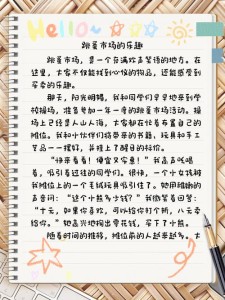 Hello~
跳蚤市场的乐趣
跳蚤市场,是一个充满欢声笑语的地方。在
这里,大家不仅能找到心仪的物品,还能感受到
买卖的乐趣。
那天,阳光明媚,我和同学们早早地来到学
校操场,准备参加一年一度的跳蚤市场活动。操
场上已经是人山人海,大家都在忙着布置自己的
摊位。我和小伙伴们将带来的书籍、玩具和手工
艺品一一摆好,并挂上了醒目的标价。
“快来看看!便宜又实惠!”我高声吆喝
着,吸引着过往的同学们。很快,一个小女孩被
我摊位上的一个毛绒玩具吸引住了。她用稚嫩的
声音问:“这个小熊多少钱?”我微笑着回答:
“十元,如果你喜欢,可以给你打个折,八元卖
给你。”她高兴地掏出零花钱,买下了小熊。
随着时间的推移,摊位前的人越来越多。大